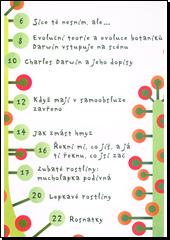 6 Sice tě nesním, ale...
8 Evoluční teorie a evoluce botaniků
Darwin vstupuje na scénu
10 Charles Darwin a jeho dopisy
12 Když mají v samoobsluze
zavřeno
14 Jak zmást hmyz
16 Řekni mi, co jíš, a já
ti řeknu, co jsi zač
17 Zubaté rostliny:
mucholapka podivná
20 Lepkavé rostliny
22 Rosnatky